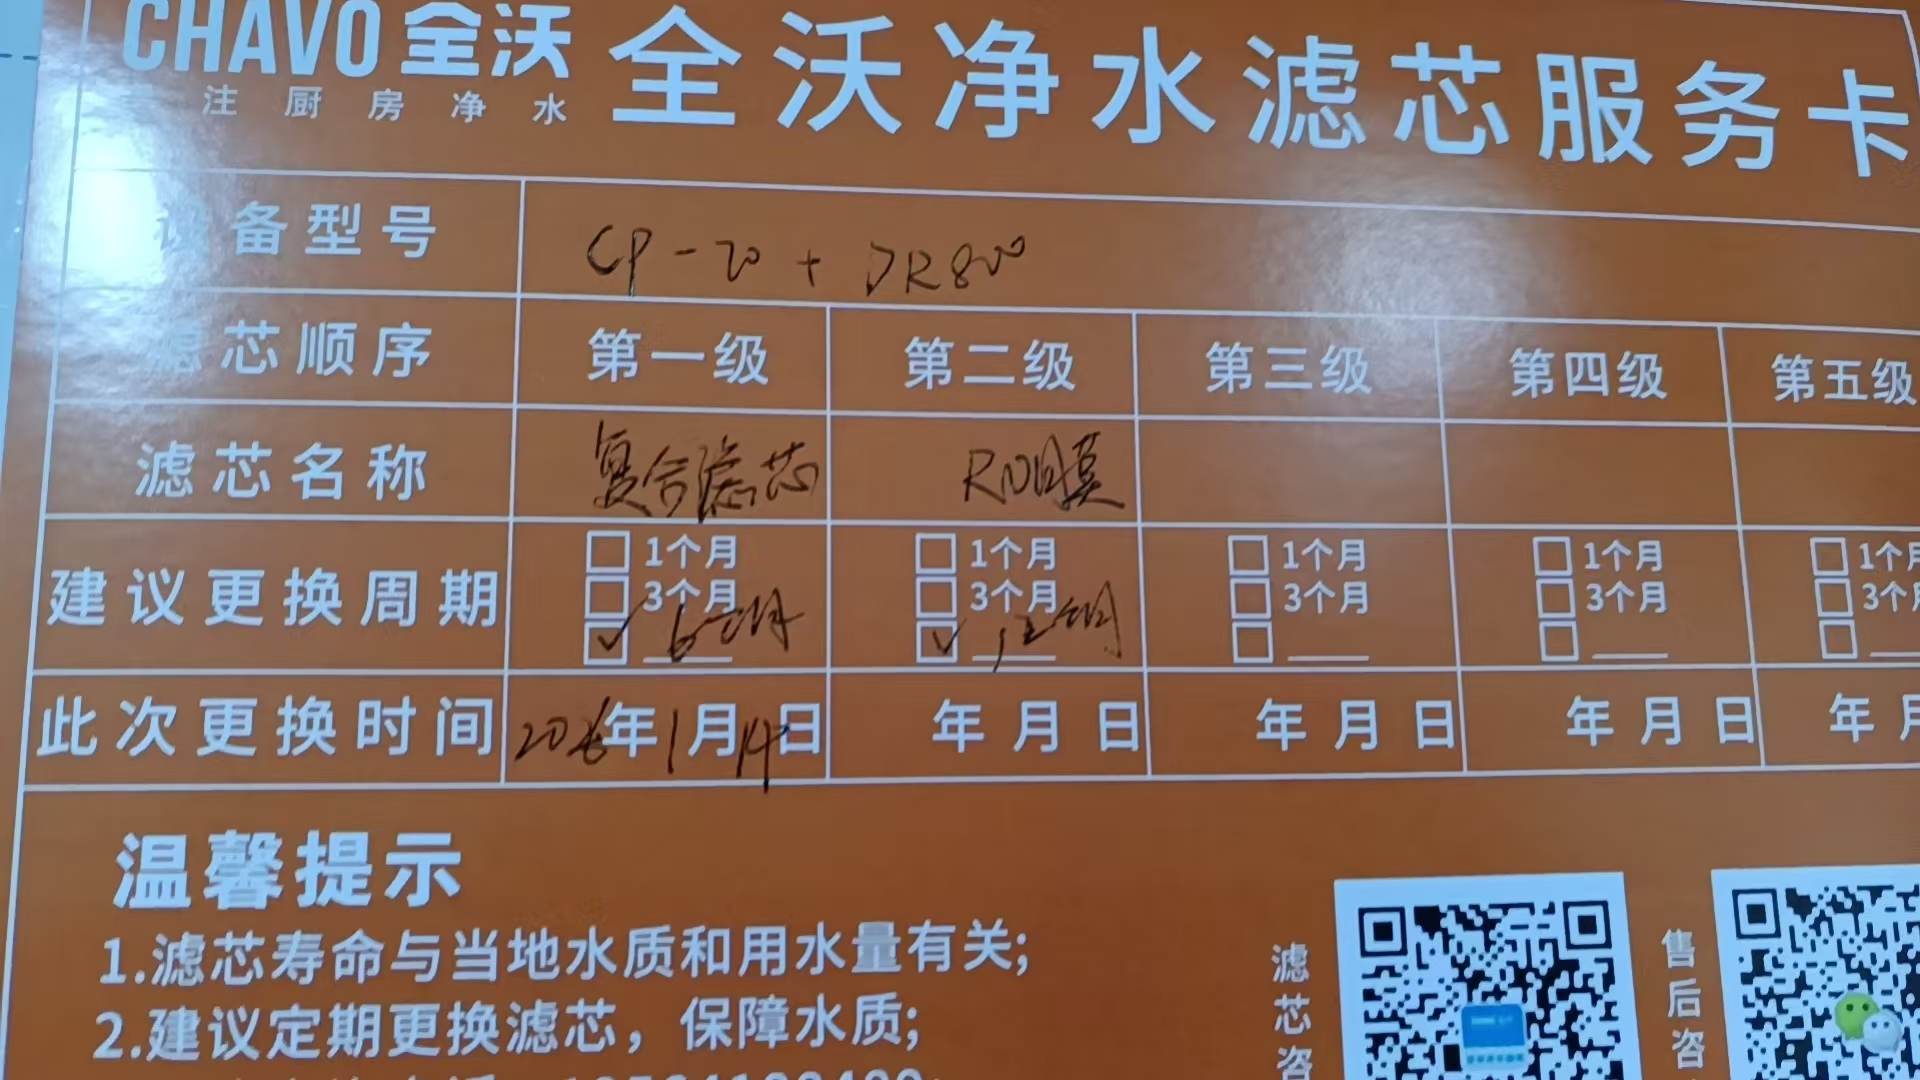 CHAVO全沃 全沃净水滤芯服务卡
专注厨房净水
设备型号 CP-70+DR800
滤芯顺序 第一级 第二级 第三级 第四级 第五级
滤芯名称 复合滤芯 RO膜
建议更换周期 1个月 1个月 1个月 1个月 1个月
3个月 3个月 3个月 3个月 3个月
✓ 6个月 ✓ 12个月
此次更换时间 2026年1月14日 年月日 年月日 年月日 年月
温馨提示
1.滤芯寿命与当地水质和用水量有关;
2.建议定期更换滤芯，保障水质;
滤芯咨
售后咨